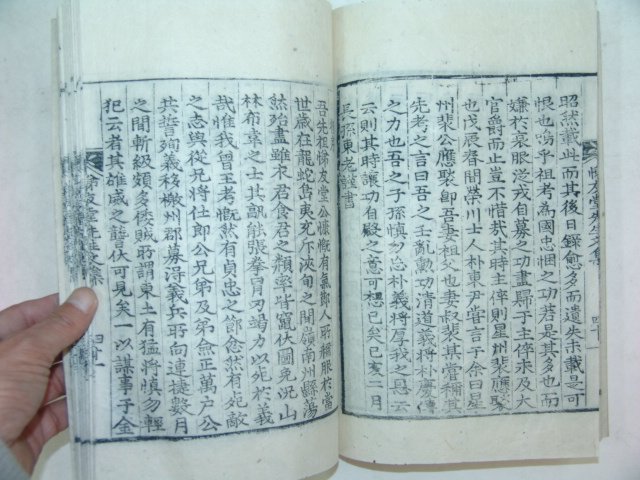 昭然載此而其後日錄愈多而遺失未載是可
恨也嗚乎祖考為國忠悃之功若是其多也而
嫌於衰服從戎自募之功盡歸于主倅來及大
官爵而止豈不惜哉其時主倅則星州裴應褧
也戊辰春間榮川士人朴東尹嘗言于余曰星
州裴公應褧卽吾妻祖父也妻叔裴某嘗稱其
先考之言曰吾之壬亂勳功清道義將朴慶傳
之力也吾之子孫愼勿忘朴義將厚我之恩云
云則其時讓功自毀之意可想已矣己亥二月
孫東老謹書
悌友堂先生文集
吾先祖悌友堂公慷慨有氣節人所稱服於當
世歲在龍蛇島夷充斥浹旬之間嶺南州縣蕩
然殆盡雖求君食君之類率皆竄伏圖免況山
林布韋之士其孰能張拳冒刃竭力以死於義
哉惟我曾王考慨然有貞忠之節愈然有死敵
之志與從兄將仕郎公兄弟及弟僉正萬戶公
共誓殉義移檄州郡募淂義兵所向連捷數月
之間斬級頗多倭賊所謂東土有猛將愼勿輕
犯云者其雄威之讋伏可見矣一以謀事于金
悌友堂先生文集